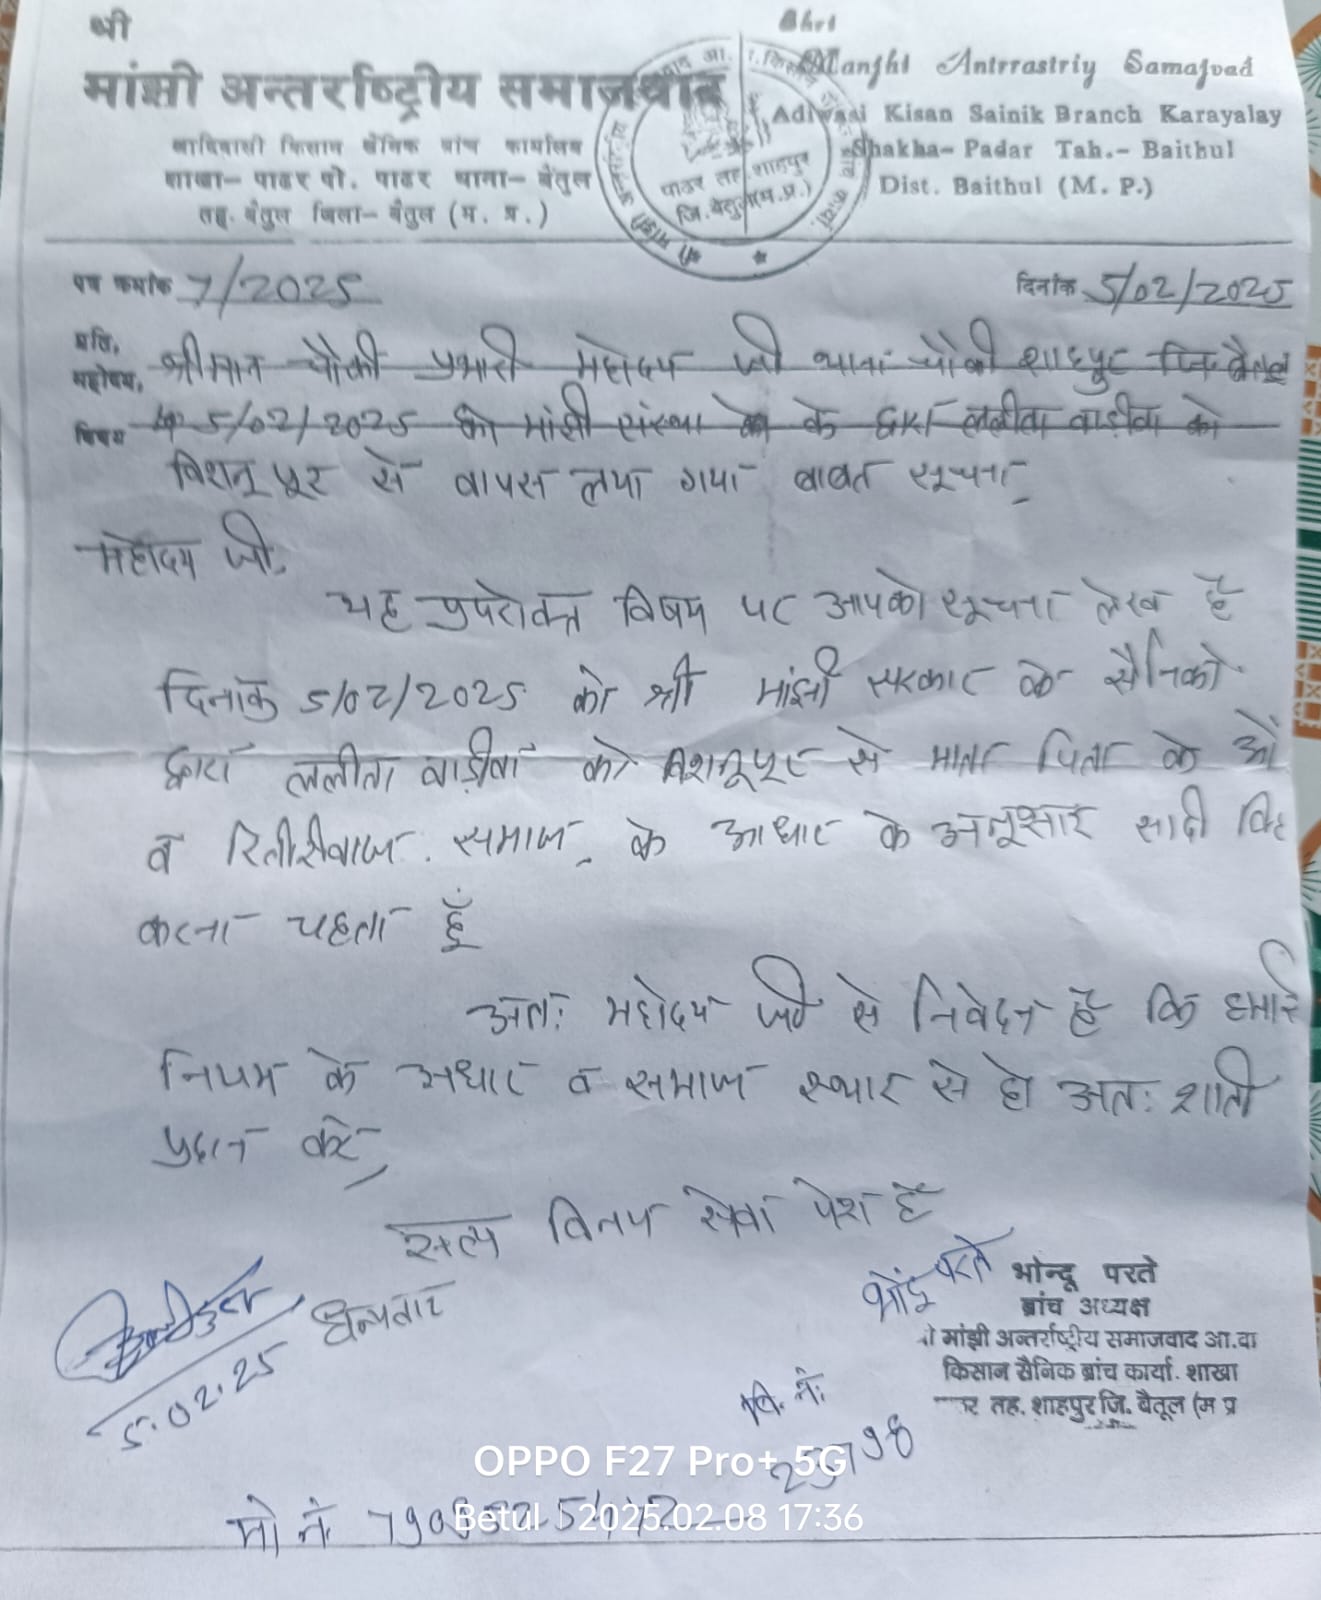 श्री
मांझी अन्तर्राष्ट्रीय समाजवाद
आदिवासी किसान सैनिक ब्रांच कार्यालय
शाखा- पाढर पो. पाढर थाना- बैतुल
तह. बैतुल जिला- बैतुल (म. प्र.)
Shri
Manjhi Antrrastriy Samajvad
Adiwasi Kisan Sainik Branch Karayalay
Shakha- Padar Tah.- Baithul
Dist. Baithul (M. P.)
पाढर तह. शाहपुर
जि. बेतुल (म.प्र.)
पत्र क्रमांक 7/2025
दिनांक 5/02/2025
प्रति, श्रीमान चौकी प्रभारी महोदय जी थाना चौकी शाहपुर जि. बैतूल
महोदय,
विषय 5/02/2025 को मांझी संस्था के ललीता वाडीवा को
विशनूपूर से वापस लया गया बाबत सूचना
महोदय जी,
यह उपरोक्त विषय पर आपको सूचना लेख है
दिनांक 5/02/2025 को श्री मांझी सरकार के सैनिको
द्वारा ललीता वाडीवा को विशनूपूर से माता पिता के
व रितीरीवाज. समाज. के आधार के अनूसार सादी
करना चहता हूँ
अतः महोदय जी से निवेदन है कि हमारे
नियम के अधार व समाज स्थार से हो अतः शांती
प्रदान करे
सत्य विनय सेवा पेश है
धन्यवाद
5.02.25
भोंदू परते
भोन्दू परते
ब्रांच अध्यक्ष
मांझी अन्तर्राष्ट्रीय समाजवाद आ.वा
किसान सैनिक ब्रांच कार्या. शाखा
तह. शाहपुर जि. बैतूल (म प्र
वि. नं.
मो नं
OPPO F27 Pro+ 5G
Betul 2025.02.08 17:36